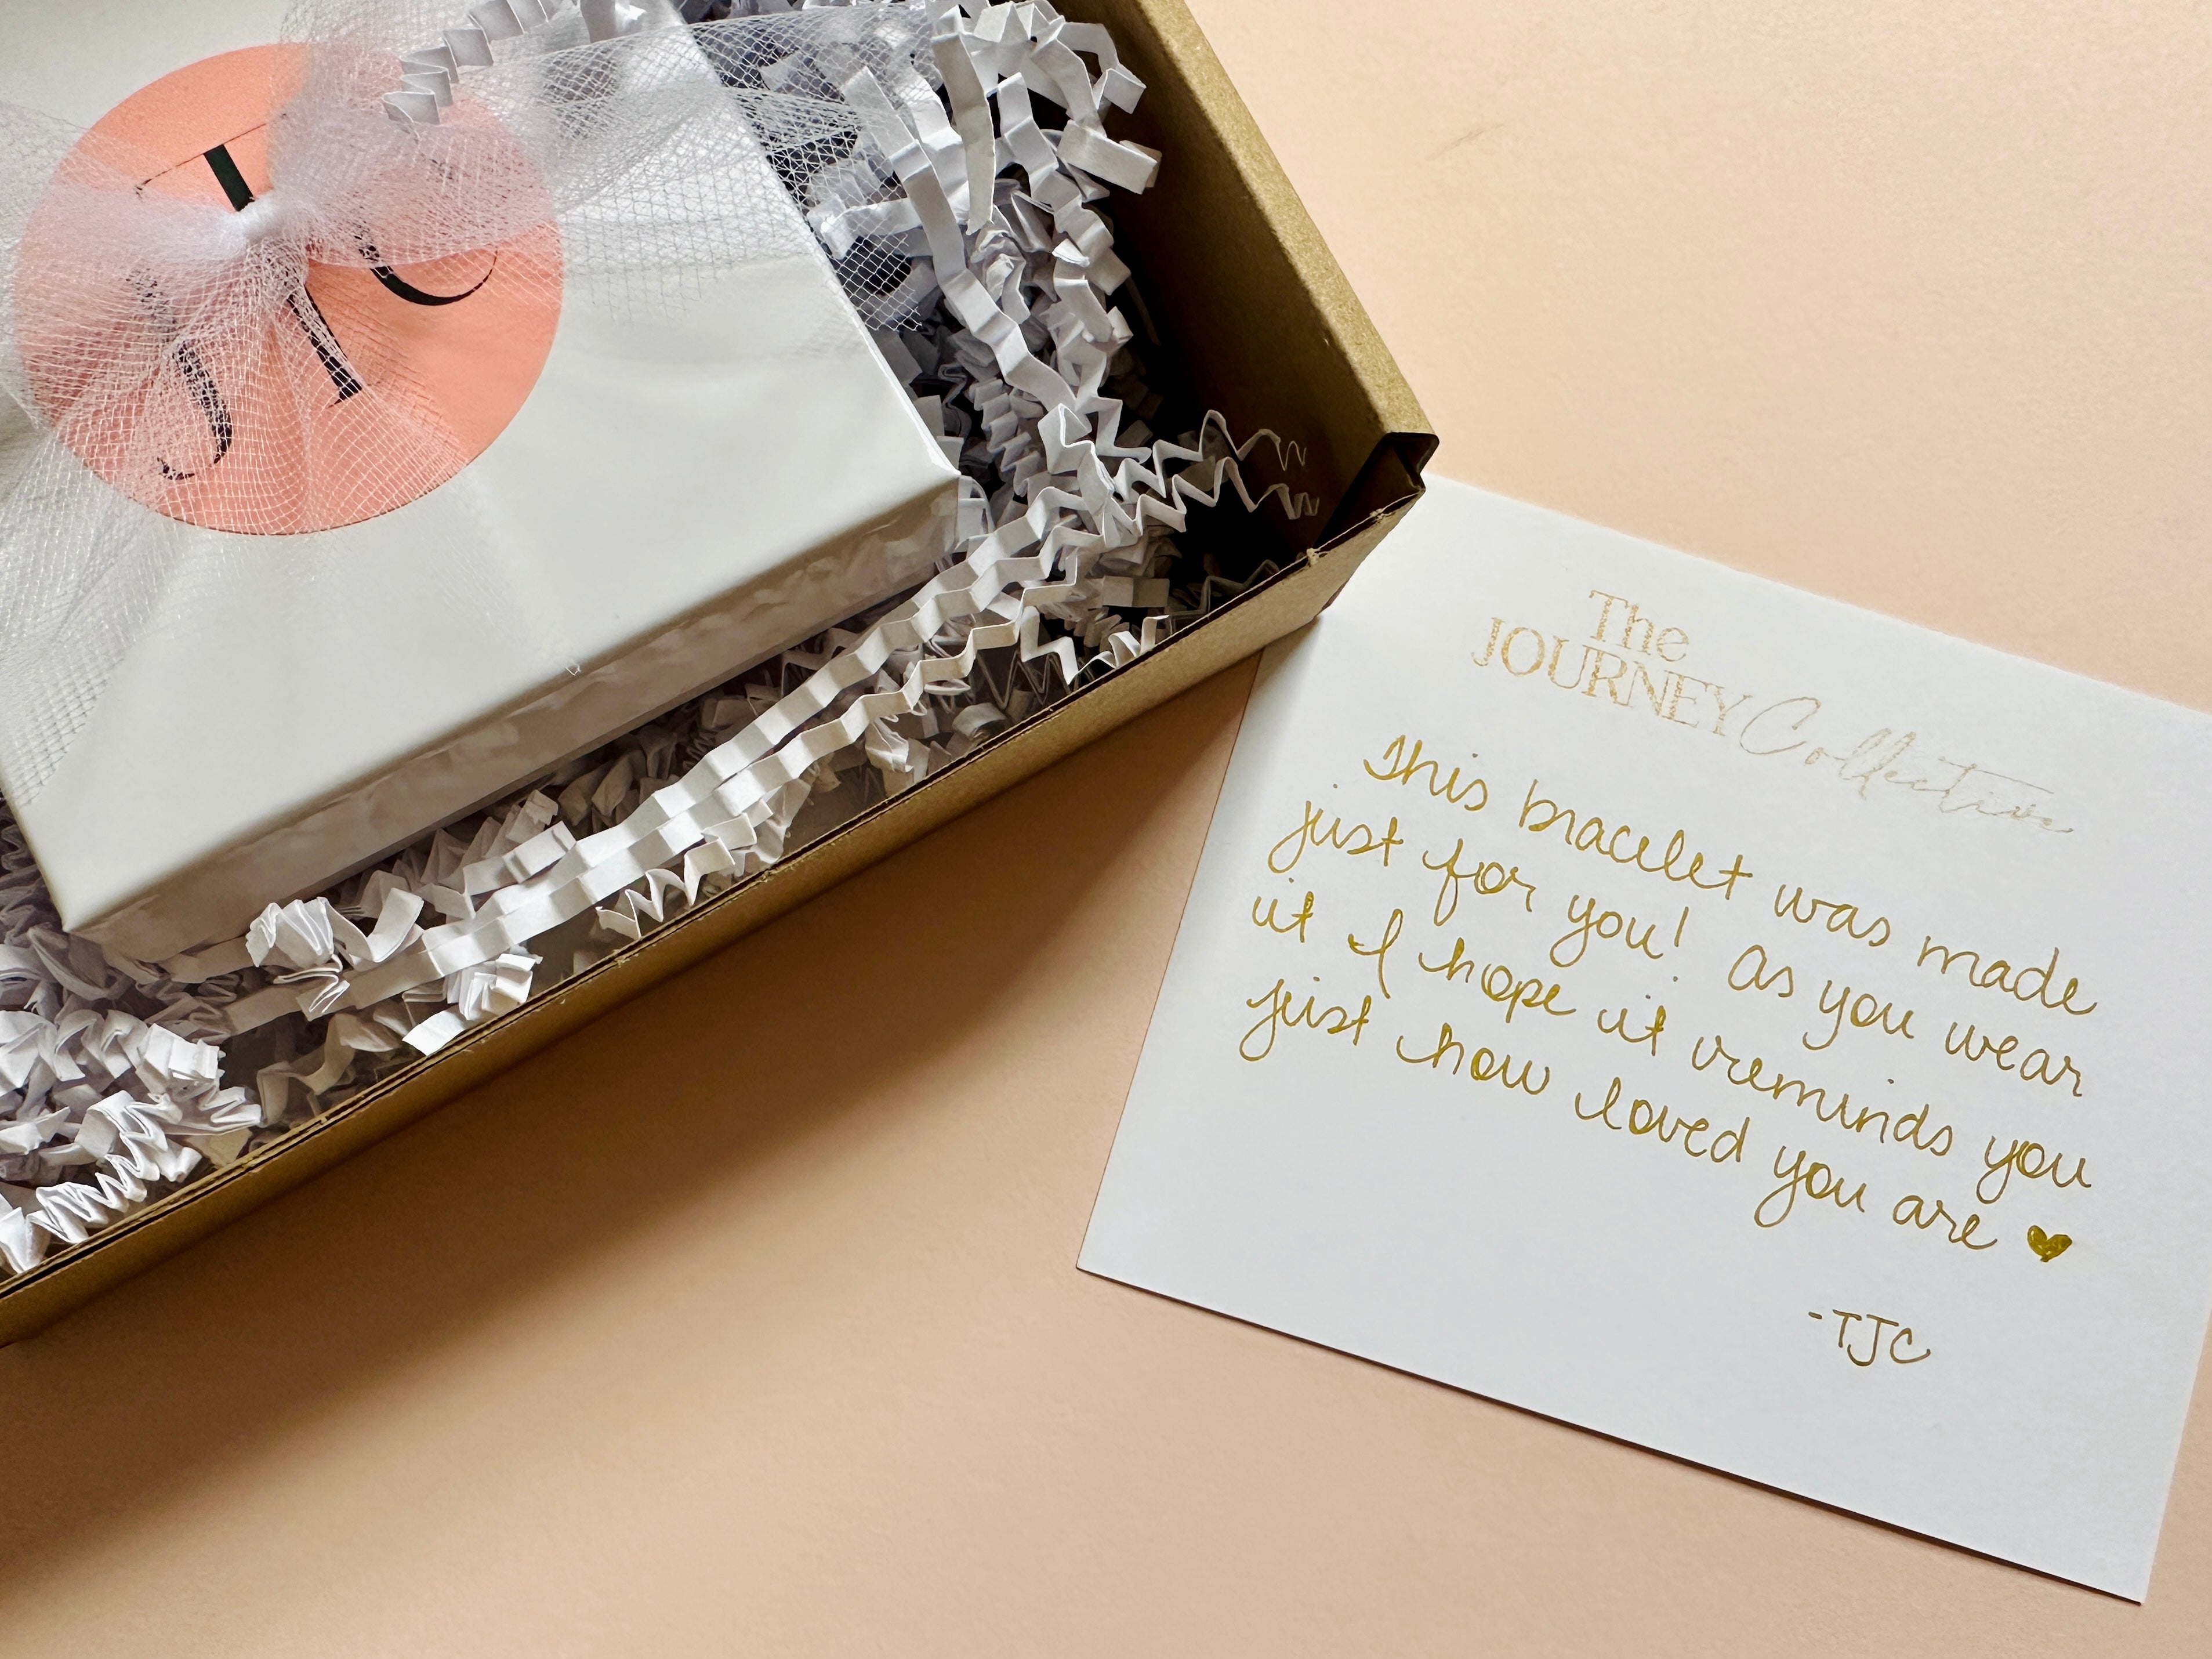 TJC
The
JOURNEY Collective
This bracelet was made
just for you! As you wear
it I hope it reminds you
just how loved you are ♥
-TJC